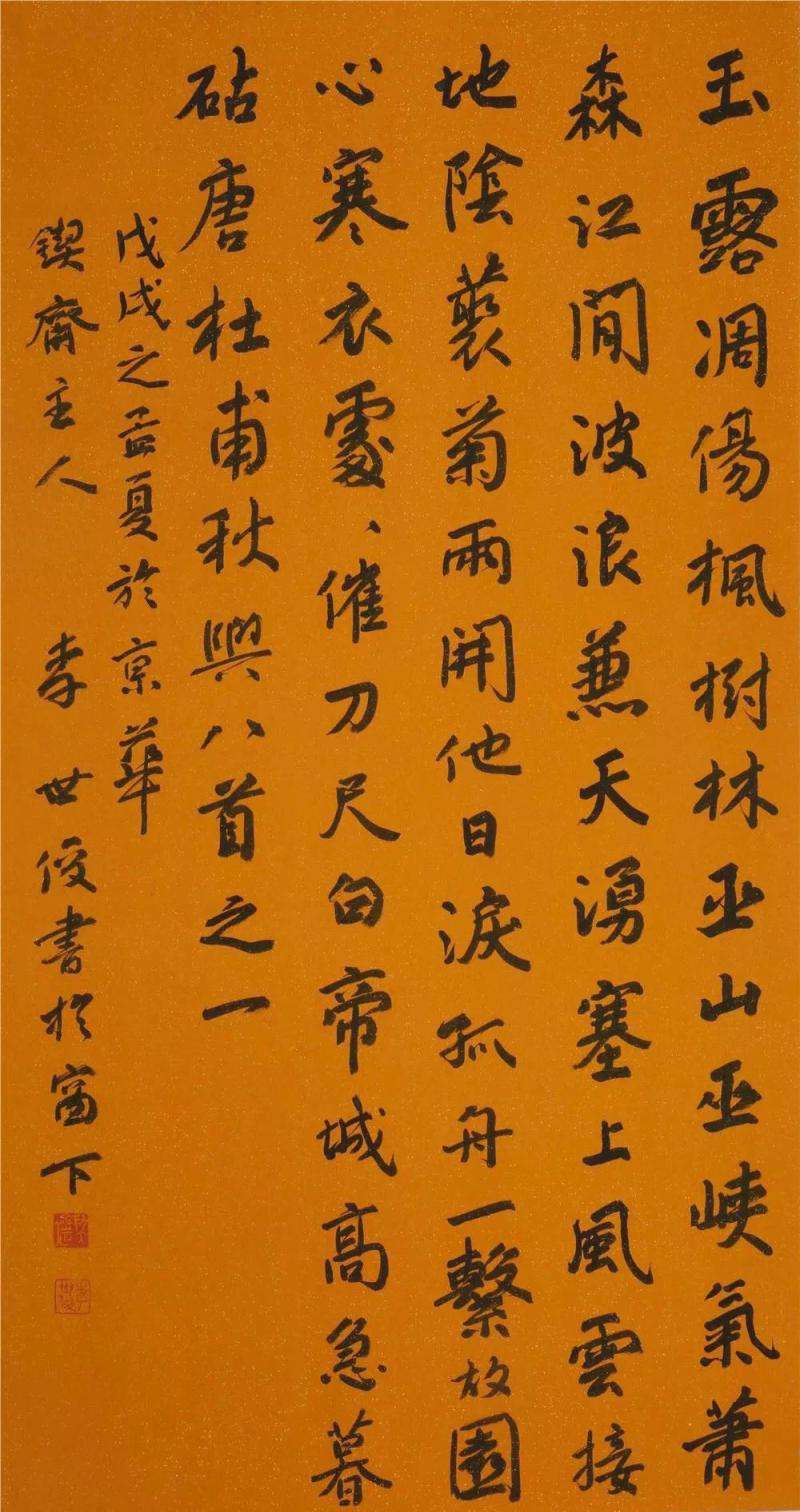 玉露凋傷楓樹林巫山巫峽氣蕭
森江間波浪兼天湧塞上風雲接
地陰叢菊兩開他日淚孤舟一繫故園
心寒衣處、催刀尺白帝城高急暮
砧唐杜甫秋興八首之一
戊戌之孟夏於京華
鍥齋主人 李世俊書於窗下